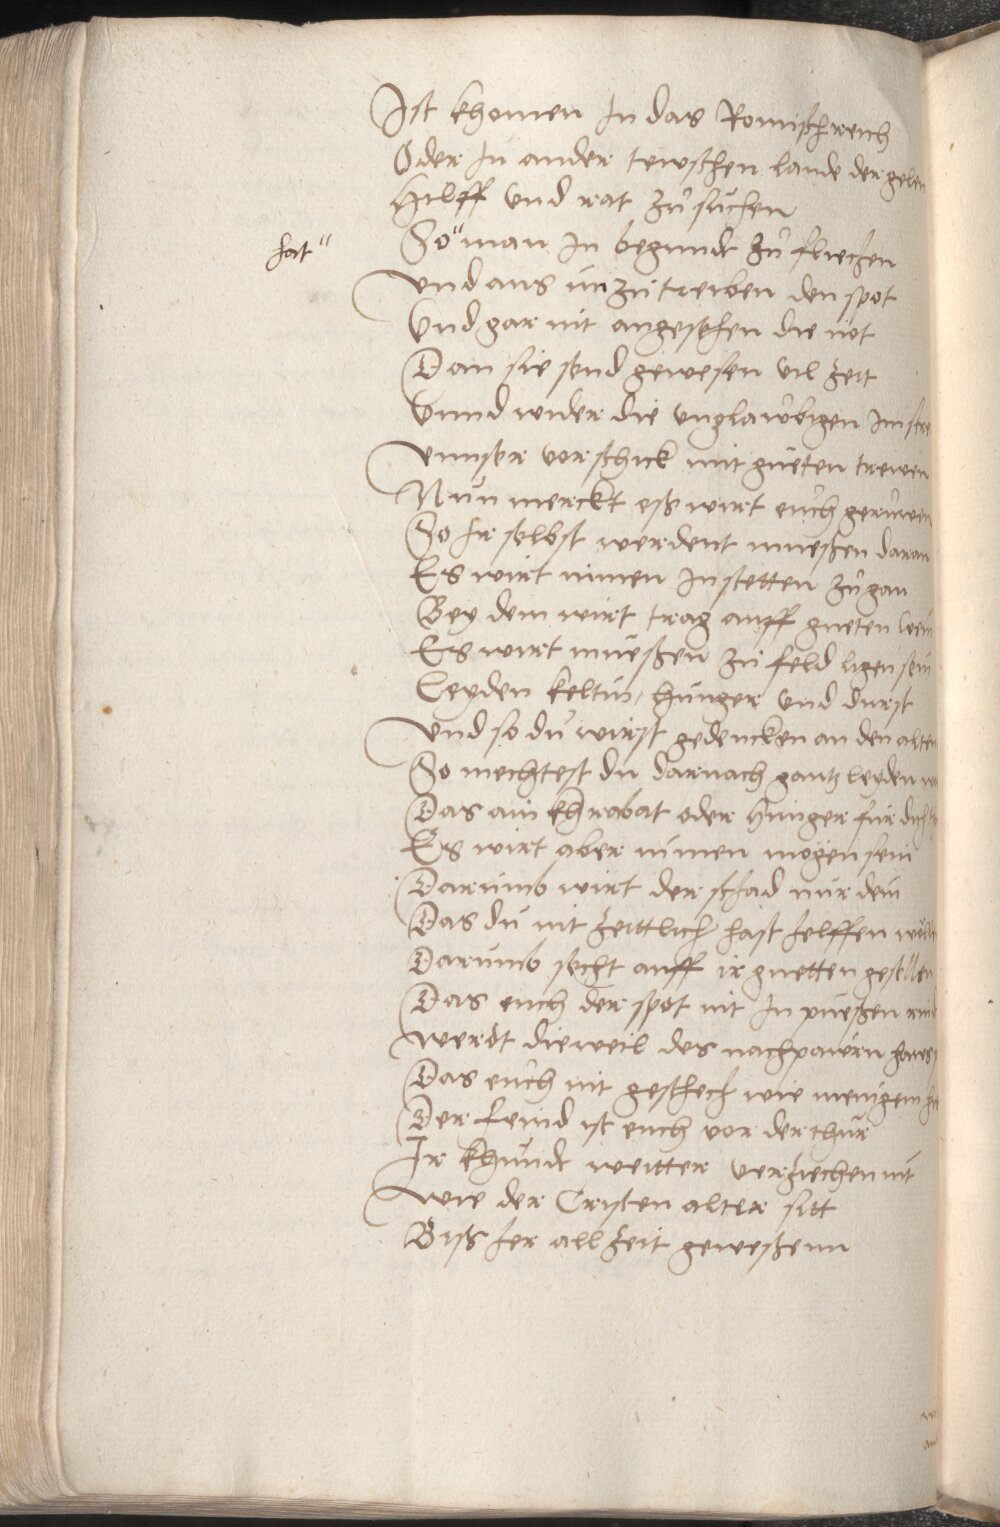 Ist khomen In das Romisch reich
Oder In ander tewschen lande der gelei
Hilff vnd rat zu suchen
hat" So" man In begundt zu fluechen
vnd aus im zu treiben den spot
Vnd gar nit angesehen die not
Dan sie send gewesen vil zeit
Vnnd wider die vnglawbigen Im stre
vnnser vorschick mit gueten trewen
Nun merckt esß wirt euch gerüwen
So Ir selbst werdent muessen daran
Es wirt nimen In stetten zu gan
Bey dem wirt trag auff gueten wein
Es wirt müessen zu feld ligen sein
Leyden keltin, hunger vnd durst
vnd so du wirst gedencken an den alten
So mechtest du darnach gantz leyden
Das ain khrabat oder Hunger für dich
Es wirt aber nimen mögen sein
Darumb wirt der schad nur dein
Das du nit zeittlich hast helffen wölle
Darumb secht auff ir guetten gesellen
Das euch der spot nit In puessen
werdt dieweil des nachpawrn haws
Das euch nit geschech wie menigem
Der feind ist euch vor der thür
Ir khundt weitter verziechen nit
wie der Cristen alter sitt
Biß her all zeit gewessenn